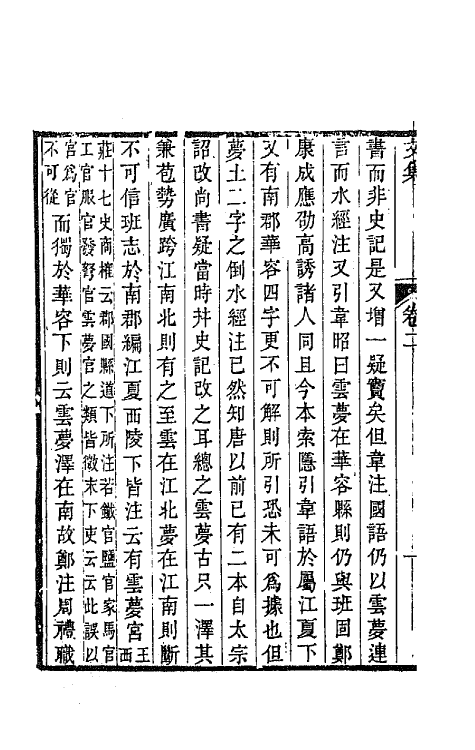 文集 卷二
書而非史記是又增一疑竇矣但韋注國語仍以雲夢連
言而水經注又引韋昭曰雲夢在華容縣則仍與班固鄭
康成應劭高誘諸人同且今本索隱引韋語於屬江夏下
又有南郡華容四字更不可解則所引恐未可爲據也但
夢土二字之倒水經注已然知唐以前已有二本自太宗
詔改尚書疑當時幷史記改之耳總之雲夢古只一澤其
兼苞勢廣跨江南北則有之至雲在江北夢在江南則斷
不可信班志於南郡編江夏西陵下皆注云有雲夢宮王西
莊十七史商榷云郡國縣道下所注若鐵官鹽官家馬官
工官服官發弩官雲夢官之類皆徵末下吏云云此誤以
官爲官
不可從 而獨於華容下則云雲夢澤在南故鄭注周禮職